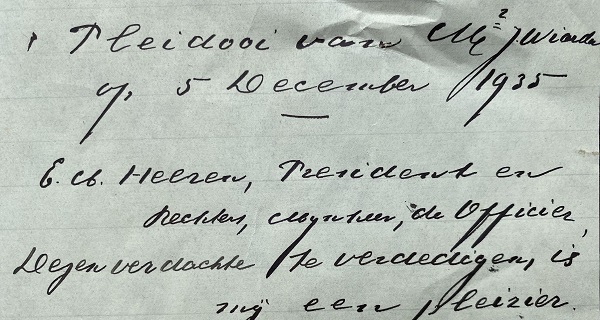 Pleidooi van Mr J. Wiarda
op 5 December 1935
E. A. Heeren, President en
Rechters, Mynheer, de Officier,
Dezen verdachte te verdedigen, is
mij een pleizier.